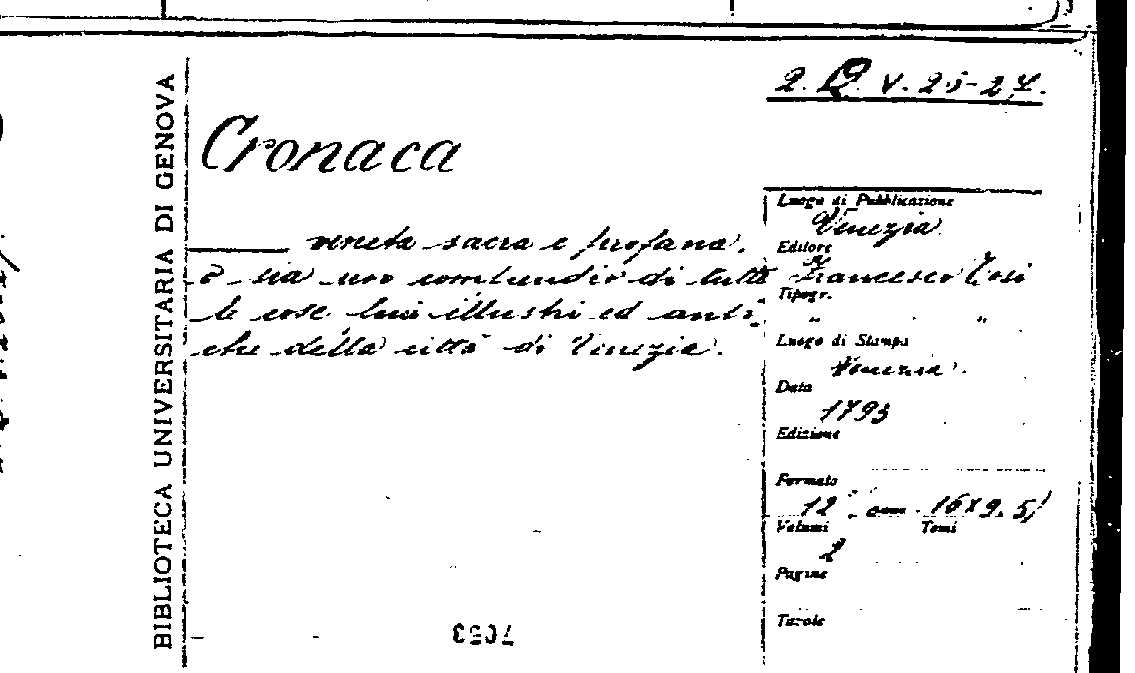 2. Q. V. 25-27.
BIBLIOTECA UNIVERSITARIA DI GENOVA
Cronaca
veneta sacra e profana,
o sia un compendio di tutte
le cose più illustri ed anti-
che della città di Venezia.
Luogo di Pubblicazione
Venezia
Editore
Francesco Tosi
Tipogr.
" "
Luogo di Stampa
Venezia.
Data
1793
Edizione
Formato
12° cm. 16x9.5/
Volumi Tomi
2
Pagine
Tavole